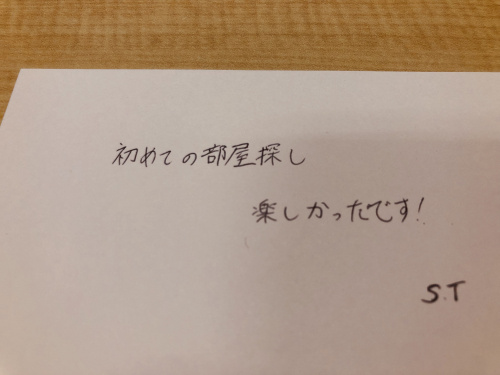 初めての部屋探し
楽しかったです!
S.T